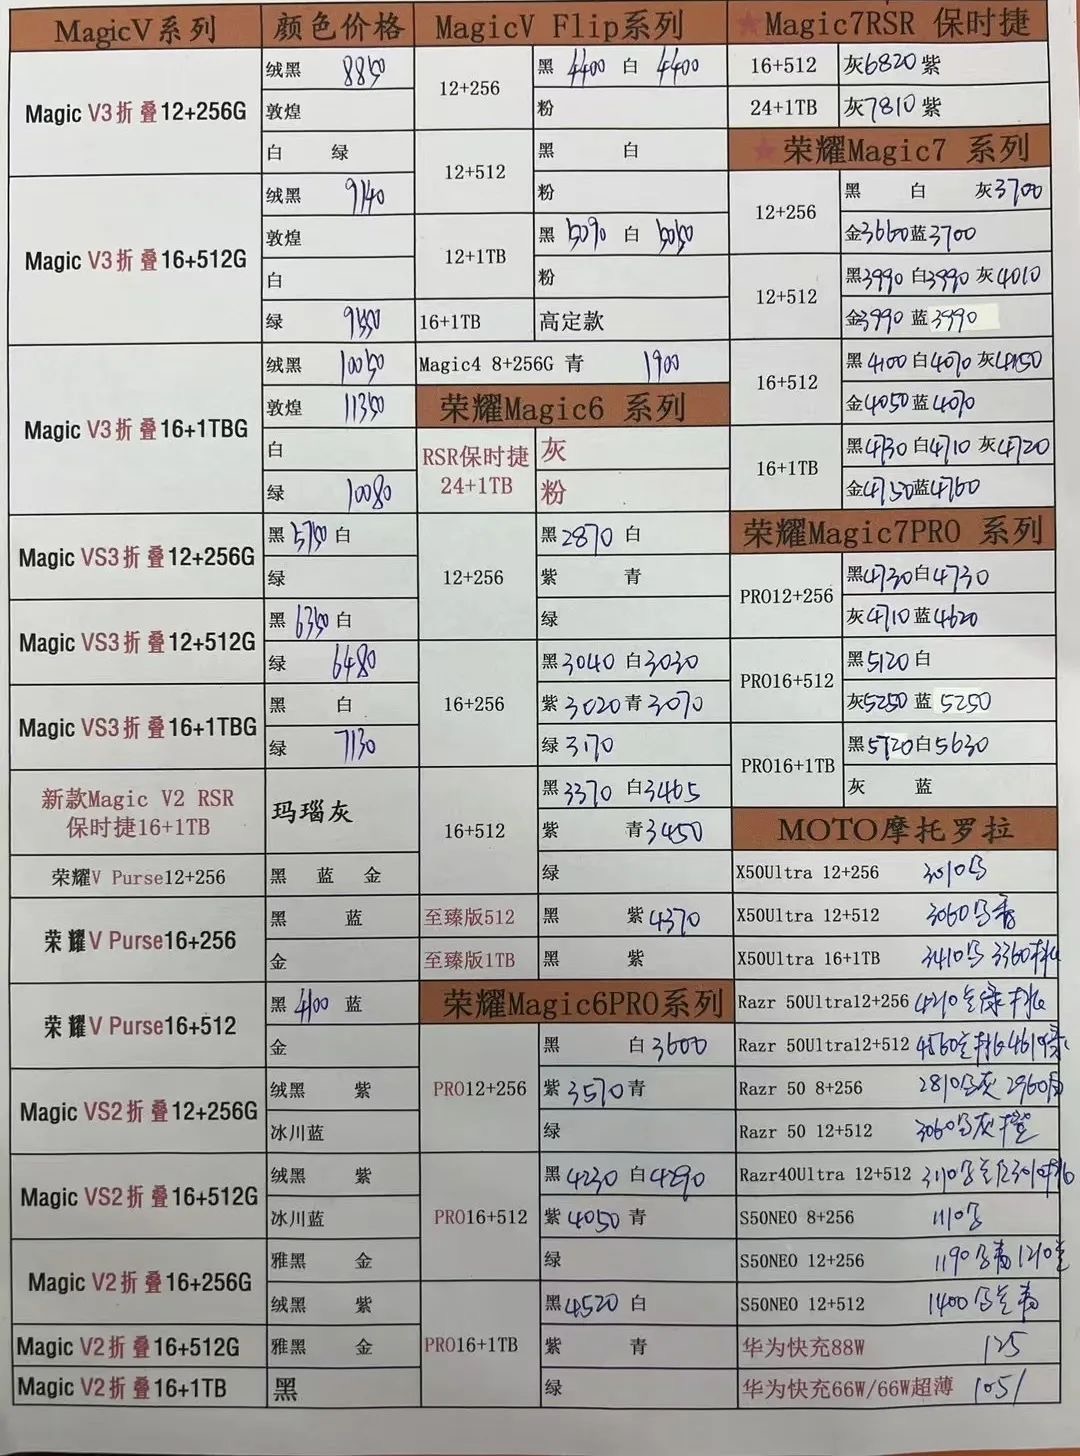 MagicV系列 颜色价格
Magic V3折叠12+256G
绒黑 8850
敦煌
白 绿
Magic V3折叠16+512G
绒黑 9140
敦煌
白
绿 9550
Magic V3折叠16+1TBG
绒黑 10050
敦煌 11350
白
绿 10080
Magic VS3折叠12+256G
黑 5750 白
绿
Magic VS3折叠12+512G
黑 6350 白
绿 6480
Magic VS3折叠16+1TBG
黑 白
绿 7130
新款Magic V2 RSR
保时捷16+1TB
玛瑙灰
荣耀V Purse12+256
黑 蓝 金
荣耀V Purse16+256
黑 蓝
金
荣耀V Purse16+512
黑 4100 蓝
金
Magic VS2折叠12+256G
绒黑 紫
冰川蓝
Magic VS2折叠16+512G
绒黑 紫
冰川蓝
Magic V2折叠16+256G
雅黑 金
绒黑 紫
Magic V2折叠16+512G
雅黑 金
Magic V2折叠16+1TB
黑
MagicV Flip系列
12+256
黑 4400 白 4400
粉
12+512
黑 白
粉
12+1TB
黑 5090 白 5050
粉
16+1TB 高定款
Magic4 8+256G 青 1900
荣耀Magic6 系列
RSR保时捷
24+1TB
灰
粉
12+256
黑2870 白
紫 青
绿
16+256
黑3040 白3030
紫3020青3070
绿3170
16+512
黑3370 白3465
紫 青3450
绿
至臻版512 黑 紫4370
至臻版1TB 黑 紫
荣耀Magic6PRO系列
PRO12+256
黑 白3600
紫3570青
绿
PRO16+512
黑4230 白4290
紫4050青
绿
PRO16+1TB
黑4520 白
紫 青
绿
★Magic7RSR 保时捷
16+512 灰6820紫
24+1TB 灰7810紫
★荣耀Magic7 系列
12+256
黑 白 灰3700
金3660蓝3700
12+512
黑3990 白3990 灰4010
金3990 蓝3990
16+512
黑4100白4070灰4150
金4050蓝4070
16+1TB
黑4730白4710灰4720
金4750蓝4760
荣耀Magic7PRO 系列
PRO12+256
黑4730白4730
灰4710蓝4620
PRO16+512
黑5120白
灰5250蓝 5250
PRO16+1TB
黑5720白5630
灰 蓝
MOTO摩托罗拉
X50Ultra 12+256 3010
X50Ultra 12+512 3060
X50Ultra 16+1TB 3410 3360
Razr 50Ultra12+256 4210
Razr 50Ultra12+512 4560 4610
Razr 50 8+256 2810 灰 2960
Razr 50 12+512 3060 灰 橙
Razr40Ultra 12+512 3110
S50NEO 8+256 1110
S50NEO 12+256 1190 1210
S50NEO 12+512 1400
华为快充88W 125
华为快充66W/66W超薄 105/